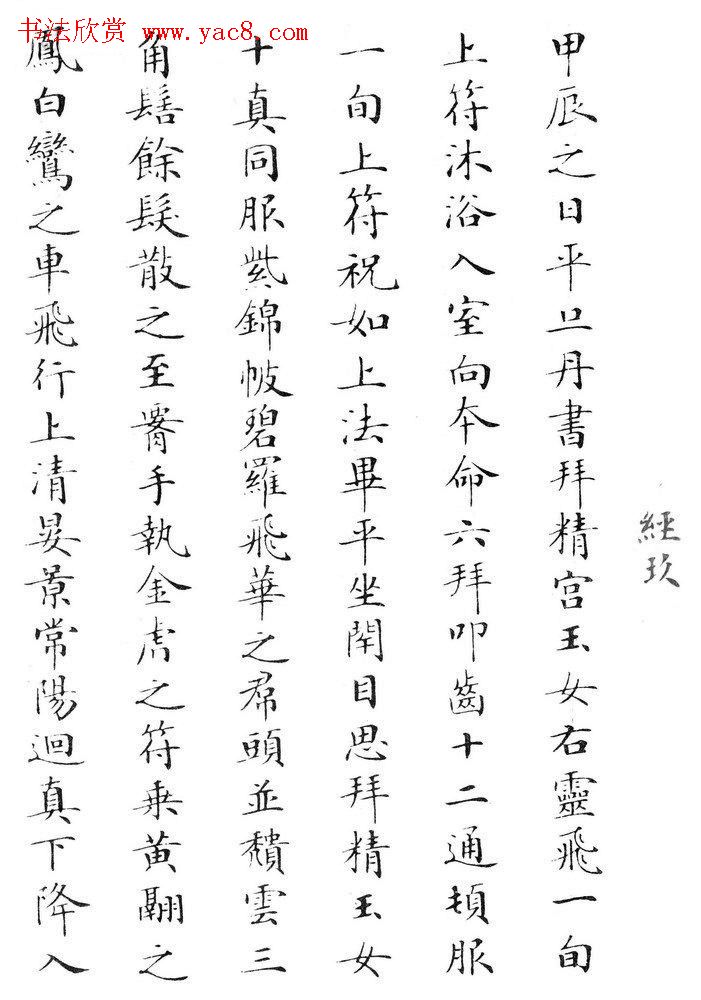 书法欣赏 www.yac8.com
經玖
甲辰之日平旦丹書拜精宫玉女右靈飛一旬
上符沐浴入室向本命六拜叩齒十二通頓服
一旬上符祝如上法畢平坐閇目思拜精玉女
十真同服紫錦帔碧羅飛華之帬頭並頽雲三
角髻餘髮散之至署手執金虎之符乗黄翮之
鳳白鸞之車飛行上清晏景常陽迴真下降入